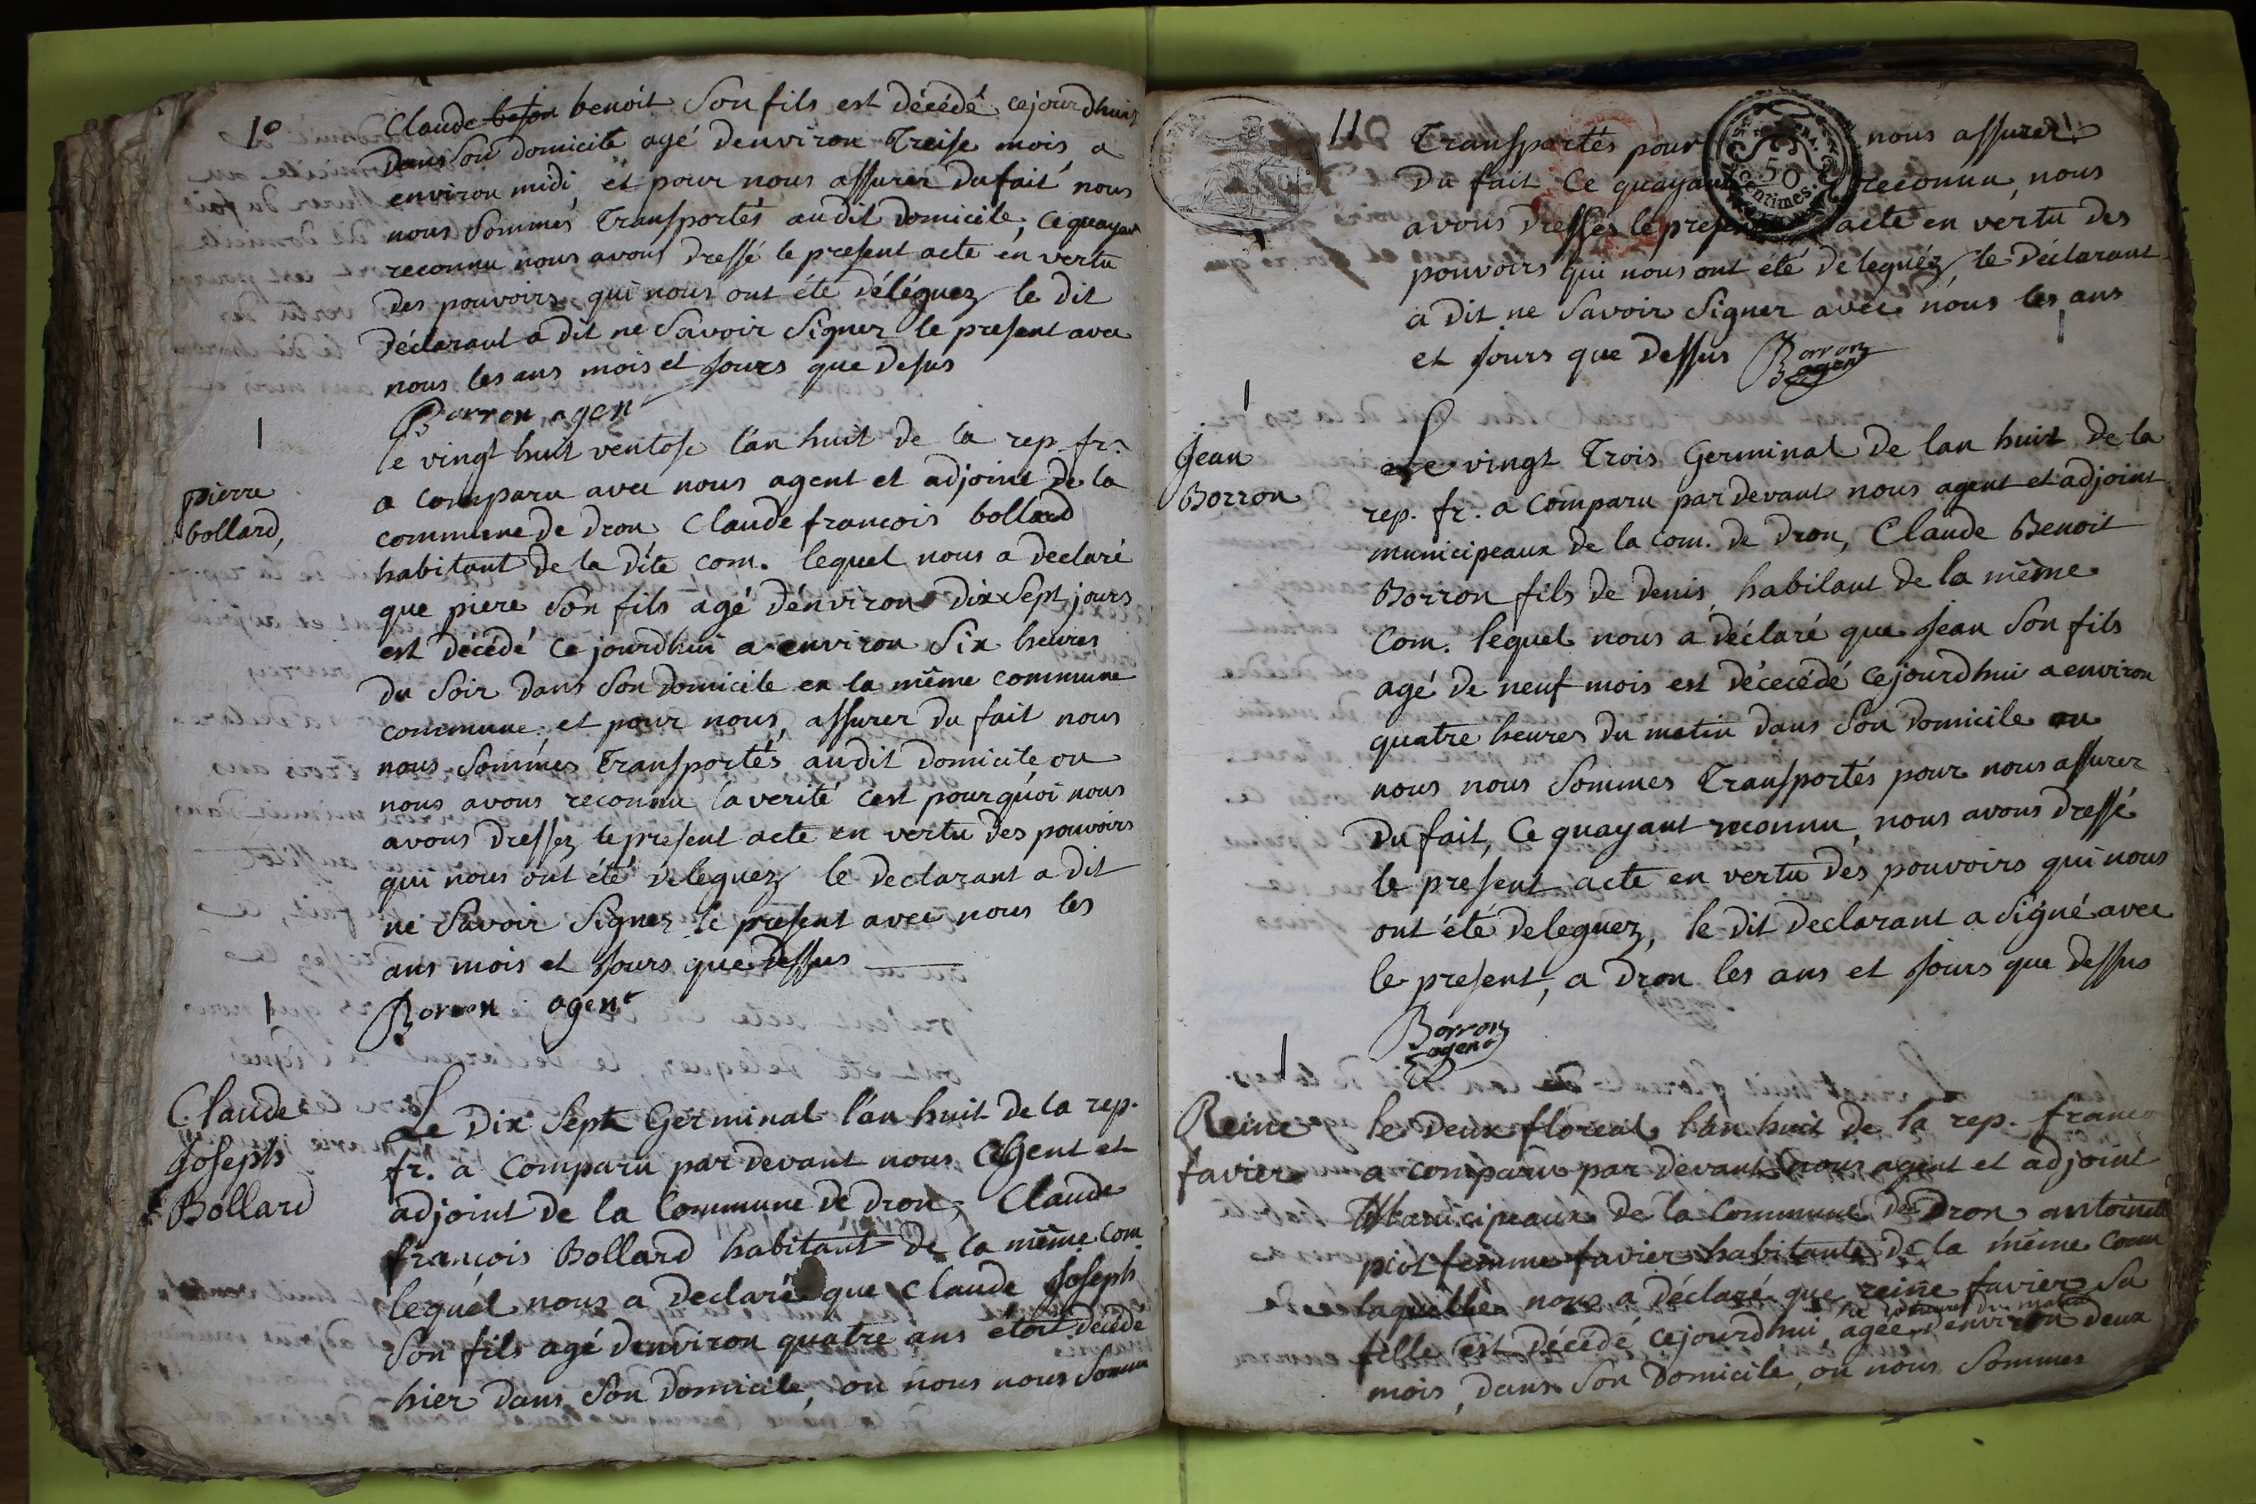 10
Claude benoit Son fils est décédé cejourdhui
Dans son domicile agé denviron Treise mois a
environ midi, et pour nous assurer du fait nous
nous Sommes Transportés audit domicile, ce quayant
reconnu nous avons dressé le present acte en vertu
des pouvoirs qui nous ont été déléguez le dit
Déclarant a dit ne Savoir Signer le present avec
nous les ans mois et Jours que desus
Borron agent
pierre
bollard,
le vingt huit ventose l'an huit de la rep. fr.
a comparu avec nous agent et adjoint de la
commune de dron Claude francois bollard
habitant de la dite com. lequel nous a declaré
que piere Son fils agé d'environ dix Sept jours
est décédé ce jourdhui a environ Six heures
du Soir dans Son domicile en la même commune
commune et pour nous assurer du fait nous
nous Sommes Transportés audit domicile ou
nous avons reconnu la verité cest pourquoi nous
avons dressez le present acte en vertu des pouvoirs
qui nous ont été deleguez le declarant a dit
ne Savoir Signer le present avec nous les
ans mois et Jours que dessus
Borron agent
Claude
Joseph
Bollard
Le Dix Sept Germinal l'an huit de la rep.
fr. a comparu par devant nous agent et
adjoint de la Commune de dron, Claude
françois Bollard habitant de la même com
lequel nous a declaré que Claude Joseph
Son fils agé denviron quatre ans étoit décédé
hier dans Son domicile, ou nous nous Somme
11
Transportés pour nous assurer
Du fait Ce quayant reconnu, nous
avons dressés le present acte en vertu des
pouvoirs qui nous ont été deleguéz, le déclarant
a dit ne Savoir Signer avec nous les ans
et Jours que dessus Borron
agent
50
centimes
Jean
Borron
Le vingt Trois Germinal de lan huit de la
rep. fr. a comparu par devant nous agent et adjoint
municipeaux de la com. de dron, Claude Benoit
Borron fils de denis habitant de la même
Com. lequel nous a déclaré que Jean Son fils
agé de neuf mois est décecédé cejourdhui a environ
quatre heures du matin dans Son domicile ou
nous nous Sommes Transportés pour nous assurer
Du fait, Ce quayant reconnu, nous avons dressé
le present acte en vertu des pouvoirs qui nous
ont été deleguez, le dit declarant a Signé avec
le present, a dron les ans et Jours que dessus
Borron
agent
Reine
favier
le deux floreal l'an huit de la rep. franco
a comparu par devant nous agent et adjoint
Municipeaux de la Commune de Dron antoinette
piot femme favier habitante de la même Comm
laquelle nous a déclaré que reine favier Sa
heures du matin
fille est décédé cejourdhui, agée denviron deux
mois, dans Son Domicile, ou nous Sommes